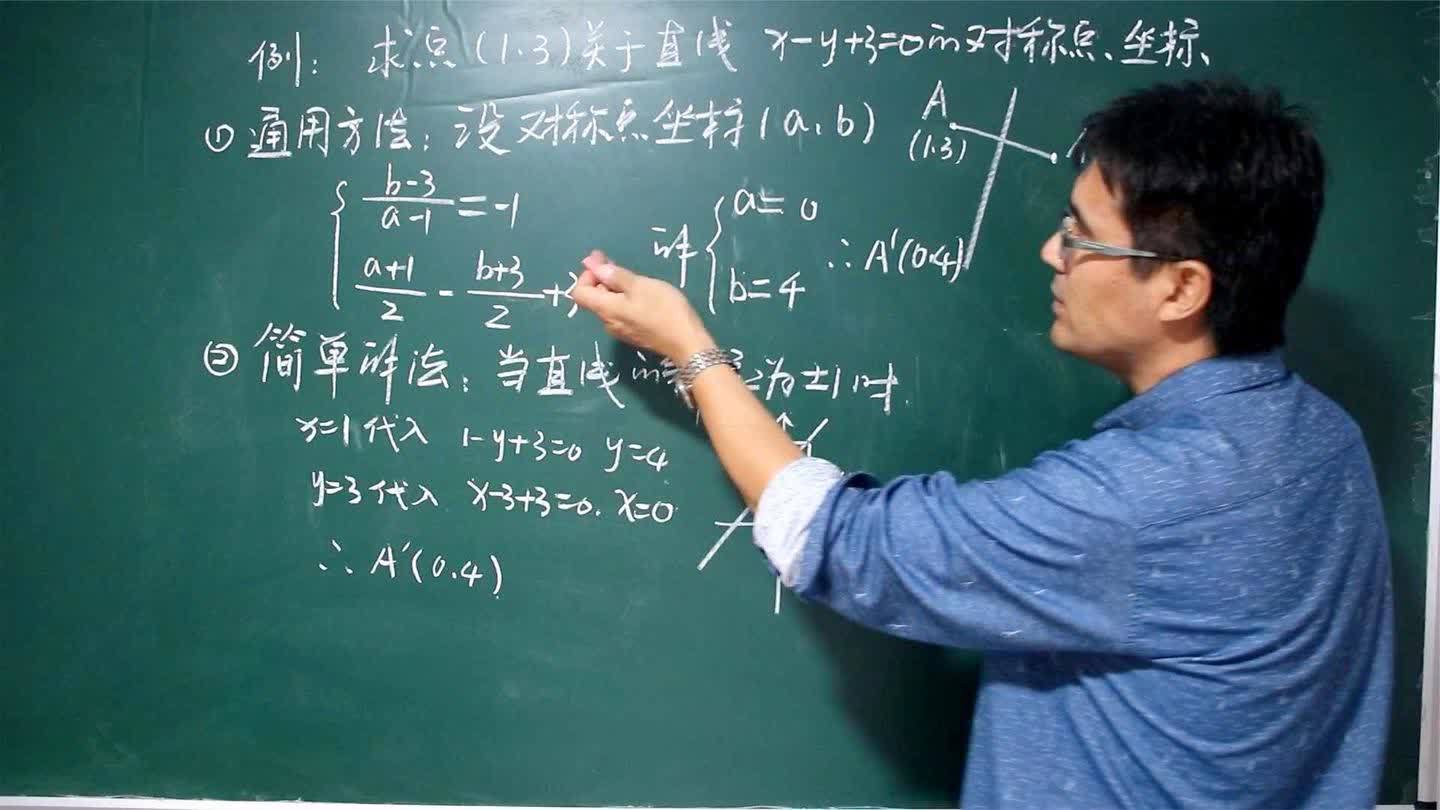 例: 求点(1.3)关于直线 x-y+3=0的对称点坐标、
①通用方法: 设对称点坐标(a,b)
A
(1.3)
b-3
a-1
=-1
a+1
2
-
b+3
2
+3
解
a=0
b=4
∴A'(0.4)
②简单解法: 当直线的 为±1时.
x=1代入 1-y+3=0 y=4
y=3代入 x-3+3=0. x=0
∴A'(0.4)